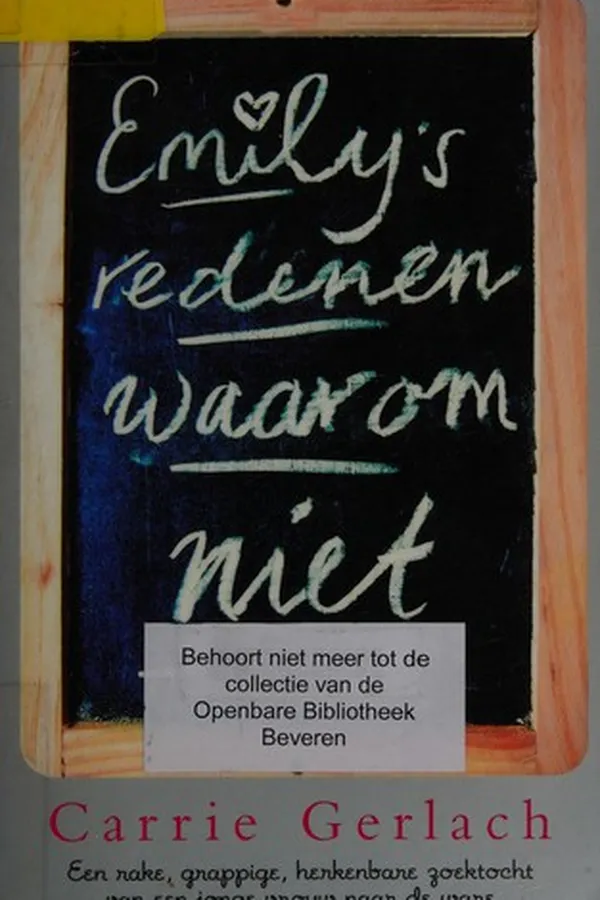 Emily's
redenen
waarom
niet
Behoort niet meer tot de
collectie van de
Openbare Bibliotheek
Beveren
Carrie Gerlach
Een rake, grappige, herkenbare zoektocht
van een jonge vrouw naar de ware